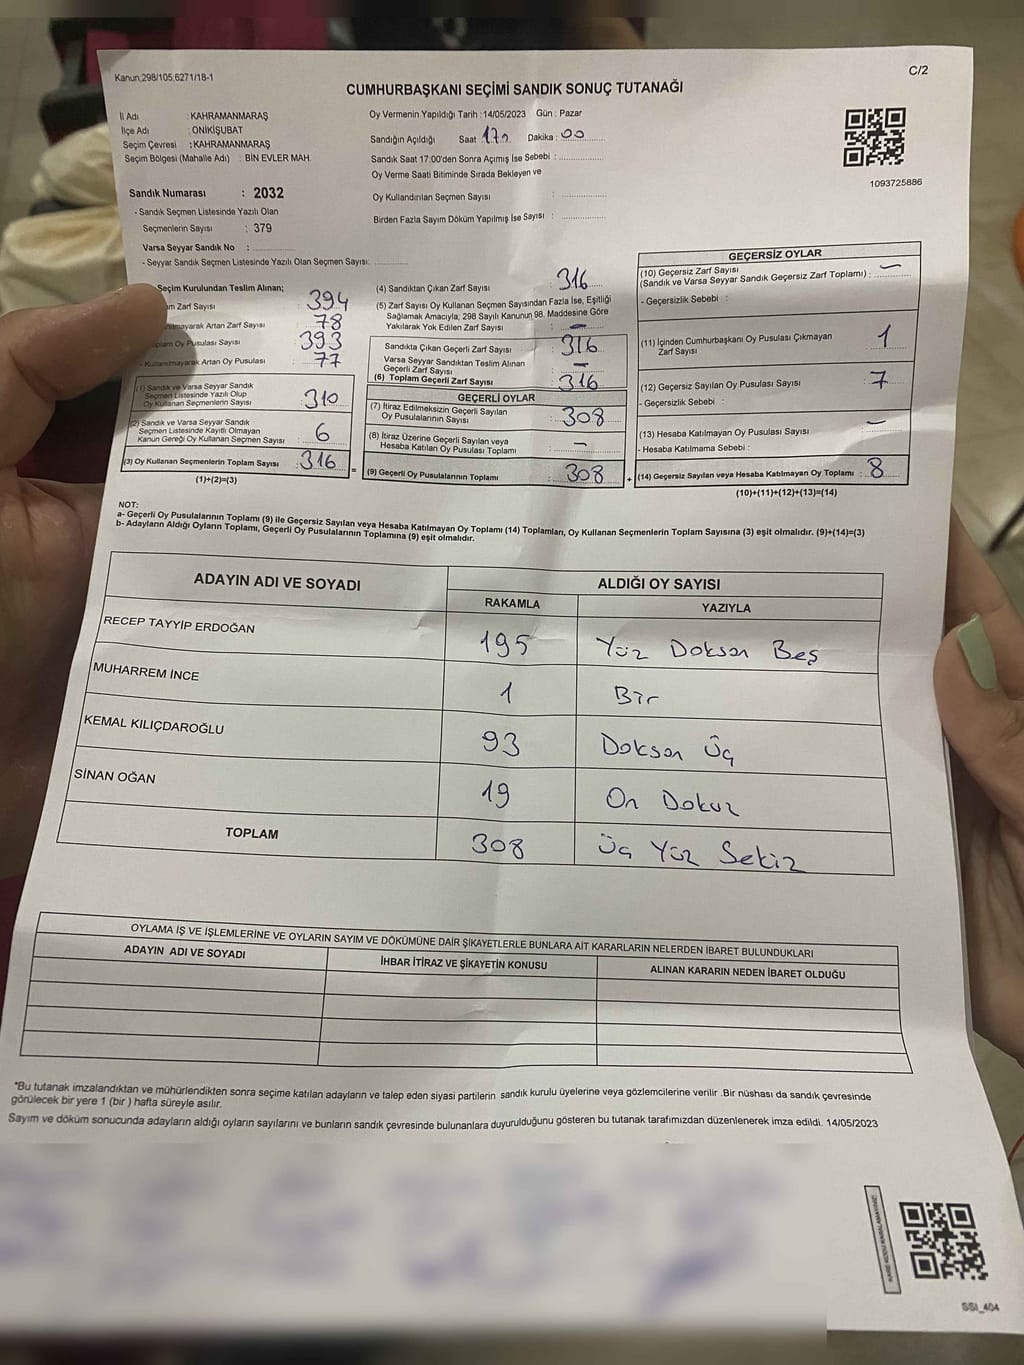 Kanun,298/105,6271/18-1
C/2
CUMHURBAŞKANI SEÇİMİ SANDIK SONUÇ TUTANAĞI
İl Adı : KAHRAMANMARAŞ
İlçe Adı : ONİKİŞUBAT
Seçim Çevresi : KAHRAMANMARAŞ
Seçim Bölgesi (Mahalle Adı) : BİN EVLER MAH.
Sandık Numarası : 2032
- Sandık Seçmen Listesinde Yazılı Olan
Seçmenlerin Sayısı : 379
Varsa Seyyar Sandık No :
- Seyyar Sandık Seçmen Listesinde Yazılı Olan Seçmen Sayısı:
Oy Vermenin Yapıldığı Tarih : 14/05/2023 Gün : Pazar
Sandığın Açıldığı Saat Dakika : 00
Sandık Saat 17:00'den Sonra Açımış İse Sebebi :
Oy Verme Saati Bitiminde Sırada Bekleyen ve
Oy Kullandırılan Seçmen Sayısı :
Birden Fazla Sayım Döküm Yapılmış İse Sayısı :
1093725886
Seçim Kurulundan Teslim Alınan;
Zarf Sayısı 394
Artan Zarf Sayısı 78
Oy Pusulası Sayısı 393
- Kullanılmayarak Artan Oy Pusulası 77
(1) Sandık ve Varsa Seyyar Sandık
Seçmen Listesinde Yazılı Olup
Oy Kullanan Seçmenlerin Sayısı 310
(2) Sandık ve Varsa Seyyar Sandık
Seçmen Listesinde Kayıtlı Olmayan
Kanun Gereği Oy Kullanan Seçmen Sayısı 6
(3) Oy Kullanan Seçmenlerin Toplam Sayısı : 316
(1)+(2)=(3)
=
(4) Sandıktan Çıkan Zarf Sayısı : 316
(5) Zarf Sayısı Oy Kullanan Seçmen Sayısından Fazla İse, Eşitliği
Sağlamak Amacıyla; 298 Sayılı Kanunun 98. Maddesine Göre
Yakılarak Yok Edilen Zarf Sayısı : —
Sandıkta Çıkan Geçerli Zarf Sayısı : 316
Varsa Seyyar Sandıktan Teslim Alınan
Geçerli Zarf Sayısı : —
(6) Toplam Geçerli Zarf Sayısı : 316
GEÇERLİ OYLAR
(7) İtiraz Edilmeksizin Geçerli Sayılan
Oy Pusulalarının Sayısı : 308
(8) İtiraz Üzerine Geçerli Sayılan veya
Hesaba Katılan Oy Pusulası Toplamı : —
(9) Geçerli Oy Pusulalarının Toplamı : 308
+
GEÇERSİZ OYLAR
(10) Geçersiz Zarf Sayısı
(Sandık ve Varsa Seyyar Sandık Geçersiz Zarf Toplamı) : —
- Geçersizlik Sebebi :
(11) İçinden Cumhurbaşkanı Oy Pusulası Çıkmayan
Zarf Sayısı : 1
(12) Geçersiz Sayılan Oy Pusulası Sayısı : 7
- Geçersizlik Sebebi :
(13) Hesaba Katılmayan Oy Pusulası Sayısı : —
- Hesaba Katılmama Sebebi :
(14) Geçersiz Sayılan veya Hesaba Katılmayan Oy Toplamı : 8
(10)+(11)+(12)+(13)=(14)
NOT:
a- Geçerli Oy Pusulalarının Toplamı (9) ile Geçersiz Sayılan veya Hesaba Katılmayan Oy Toplamı (14) Toplamları, Oy Kullanan Seçmenlerin Toplam Sayısına (3) eşit olmalıdır. (9)+(14)=(3)
b- Adayların Aldığı Oyların Toplamı, Geçerli Oy Pusulalarının Toplamına (9) eşit olmalıdır.
ADAYIN ADI VE SOYADI
ALDIĞI OY SAYISI
RAKAMLA YAZIYLA
RECEP TAYYİP ERDOĞAN 195 Yüz Doksan Beş
MUHARREM İNCE 1 Bir
KEMAL KILIÇDAROĞLU 93 Doksan Üç
SİNAN OĞAN 19 On Dokuz
TOPLAM 308 Üç Yüz Sekiz
OYLAMA İŞ VE İŞLEMLERİNE VE OYLARIN SAYIM VE DÖKÜMÜNE DAİR ŞİKAYETLERLE BUNLARA AİT KARARLARIN NELERDEN İBARET BULUNDUKLARI
ADAYIN ADI VE SOYADI İHBAR İTİRAZ VE ŞİKAYETİN KONUSU ALINAN KARARIN NEDEN İBARET OLDUĞU
*Bu tutanak imzalandıktan ve mühürlendikten sonra seçime katılan adayların ve talep eden siyasi partilerin sandık kurulu üyelerine veya gözlemcilerine verilir .Bir nüshası da sandık çevresinde
görülecek bir yere 1 (bir ) hafta süreyle asılır.
Sayım ve döküm sonucunda adayların aldığı oyların sayılarını ve bunların sandık çevresinde bulunanlara duyurulduğunu gösteren bu tutanak tarafımızdan düzenlenerek imza edildi. 14/05/2023
KARE KODU KARALAMAYINIZ
SSI_404